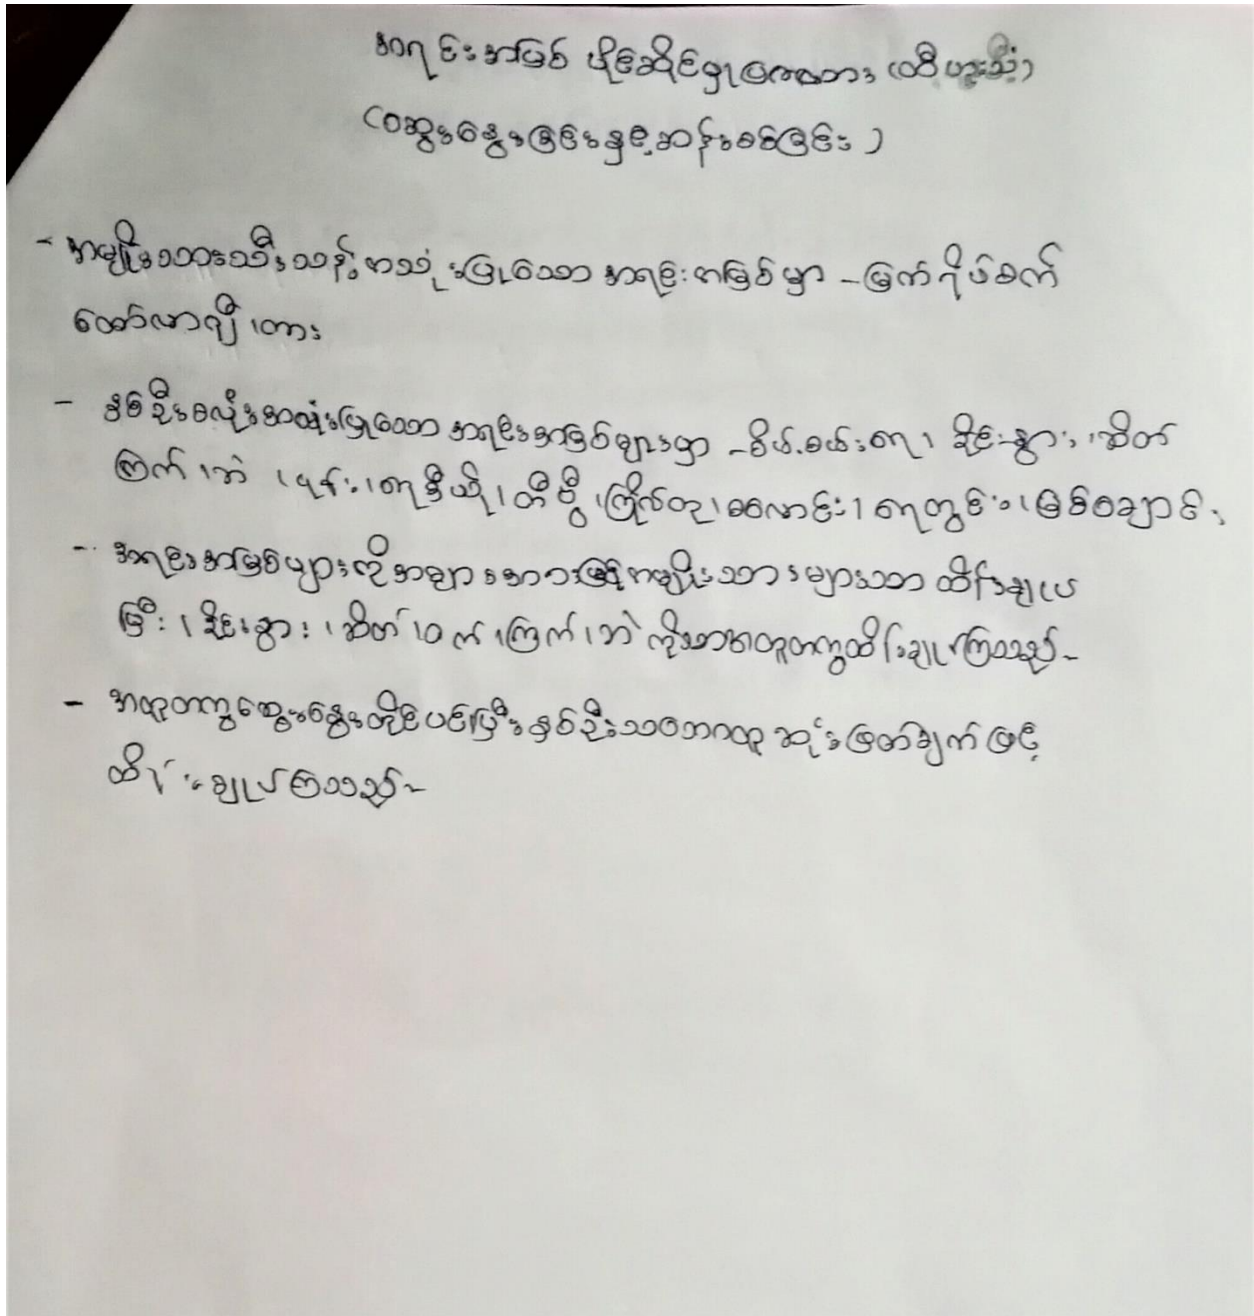 အရင်းအမြစ် ပိုင်ဆိုင်မှုဇယား (ထီဟူးသီး)
(ဝဆွေးနွေးခြင်းနှင့်ဆန်းစစ်ခြင်း)
- အမျိုးသားသီးသန့်အသုံးပြုသော အရင်းအမြစ်မှာ - မြက်ရိတ်စက်
ထော်လာဂျီ၊ကား
- နှစ်ဦးစလုံးအသုံးပြုသော အရင်းအမြစ်များမှာ - စိုက်ခင်း၊ ခိုင်းနွား၊ဆိတ်
ကြက်၊ဘဲ၊ဖုန်း၊ရေဒီယို၊တီဗွီ၊ကြိုးတု၊လောင်း၊ရေတွင်း၊မြစ်ချောင်း
- အရင်းအမြစ်များကိုအများအားဖြင့်အမျိုးသားများသာ ထိန်းချုပ်
ပြီး၊ ခိုင်းနွား၊ဆိတ်၊ဝက်၊ကြက်၊ဘဲ ကိုသာအတူတကွထိန်းချုပ်ကြသည်-
- အတူတကွဆွေးနွေးတိုင်ပင်ပြီးနှစ်ဦးသဘောတူ ဆုံးဖြတ်ချက်ဖြင့်
ထိန်းချုပ်ကြသည်-